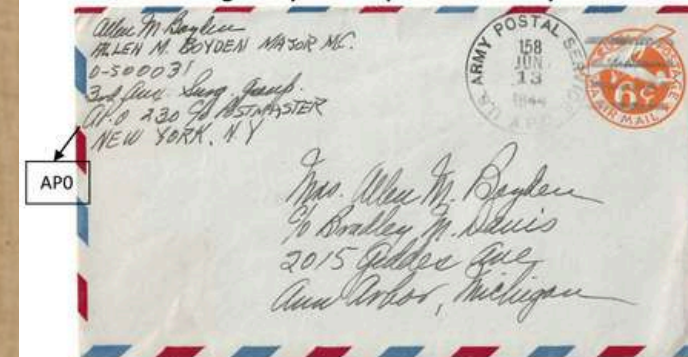 Allen M Boyden
ALLEN M. BOYDEN MAJOR MC.
O-500031
3rd Aux. Surg. Group.
A.P.O 230 c/o POSTMASTER
NEW YORK, N.Y
APO
U.S. ARMY POSTAL SERVICE
158
JUN
13
1944
A.P.O.
POSTAGE
6¢
AIR MAIL
Mrs. Allen M. Boyden
c/o Bradley M. Davis
2015 Geddes Ave
Ann Arbor, Michigan